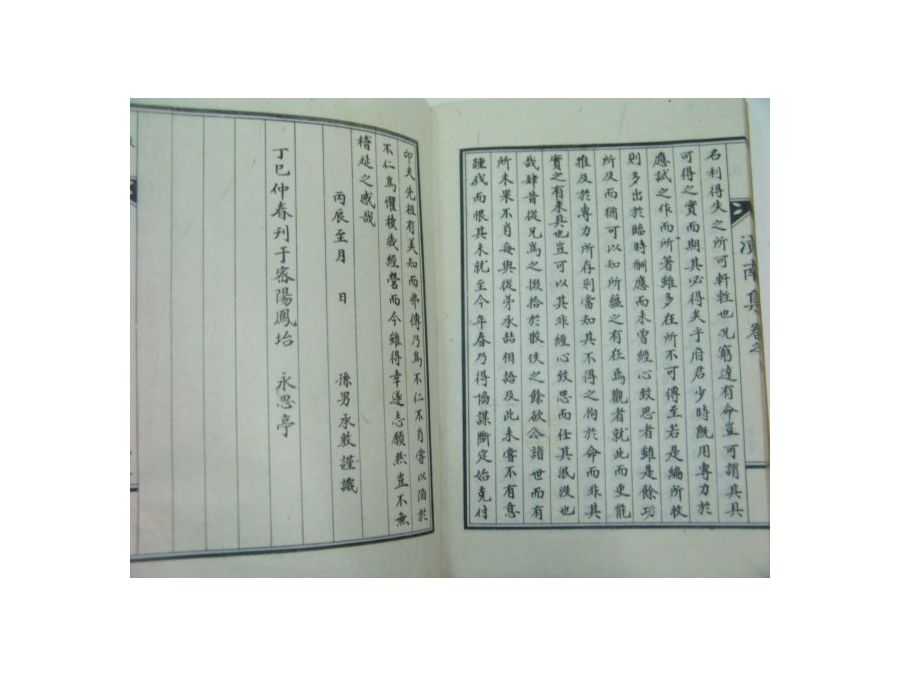 南集
名利得失之所可軒輊也況窮達有命豈可謂其具
可得之實而期其必得失乎府君少時既用專力於
應試之作而所著雖多在所不可傳至若是編所收
則多出於臨時酬應而未曾經心致思者雖是餘功
所及而猶可以知所蘊之有在焉觀者就此而更能
推及於專力所存則當知其不得之拘於命而非其
實之有未具也豈可以其非經心致思而任其泯沒也
哉肆昔從兄爲之掇拾於散佚之餘欲公諸世而有
所未果不肖每與從弟承喆相語及此未嘗不有意
踵伐而恨其未就至今年春乃得協謀斷定始克付
印夫先祖有美知而弗傳乃爲不仁不肖嘗以陷於
不仁爲懼積歲經營而今雖得幸遂志願然豈不無
稽延之感哉
丙辰至月 日 孫男承敎謹識
丁巳仲春刊于密陽鳳坮 永思亭